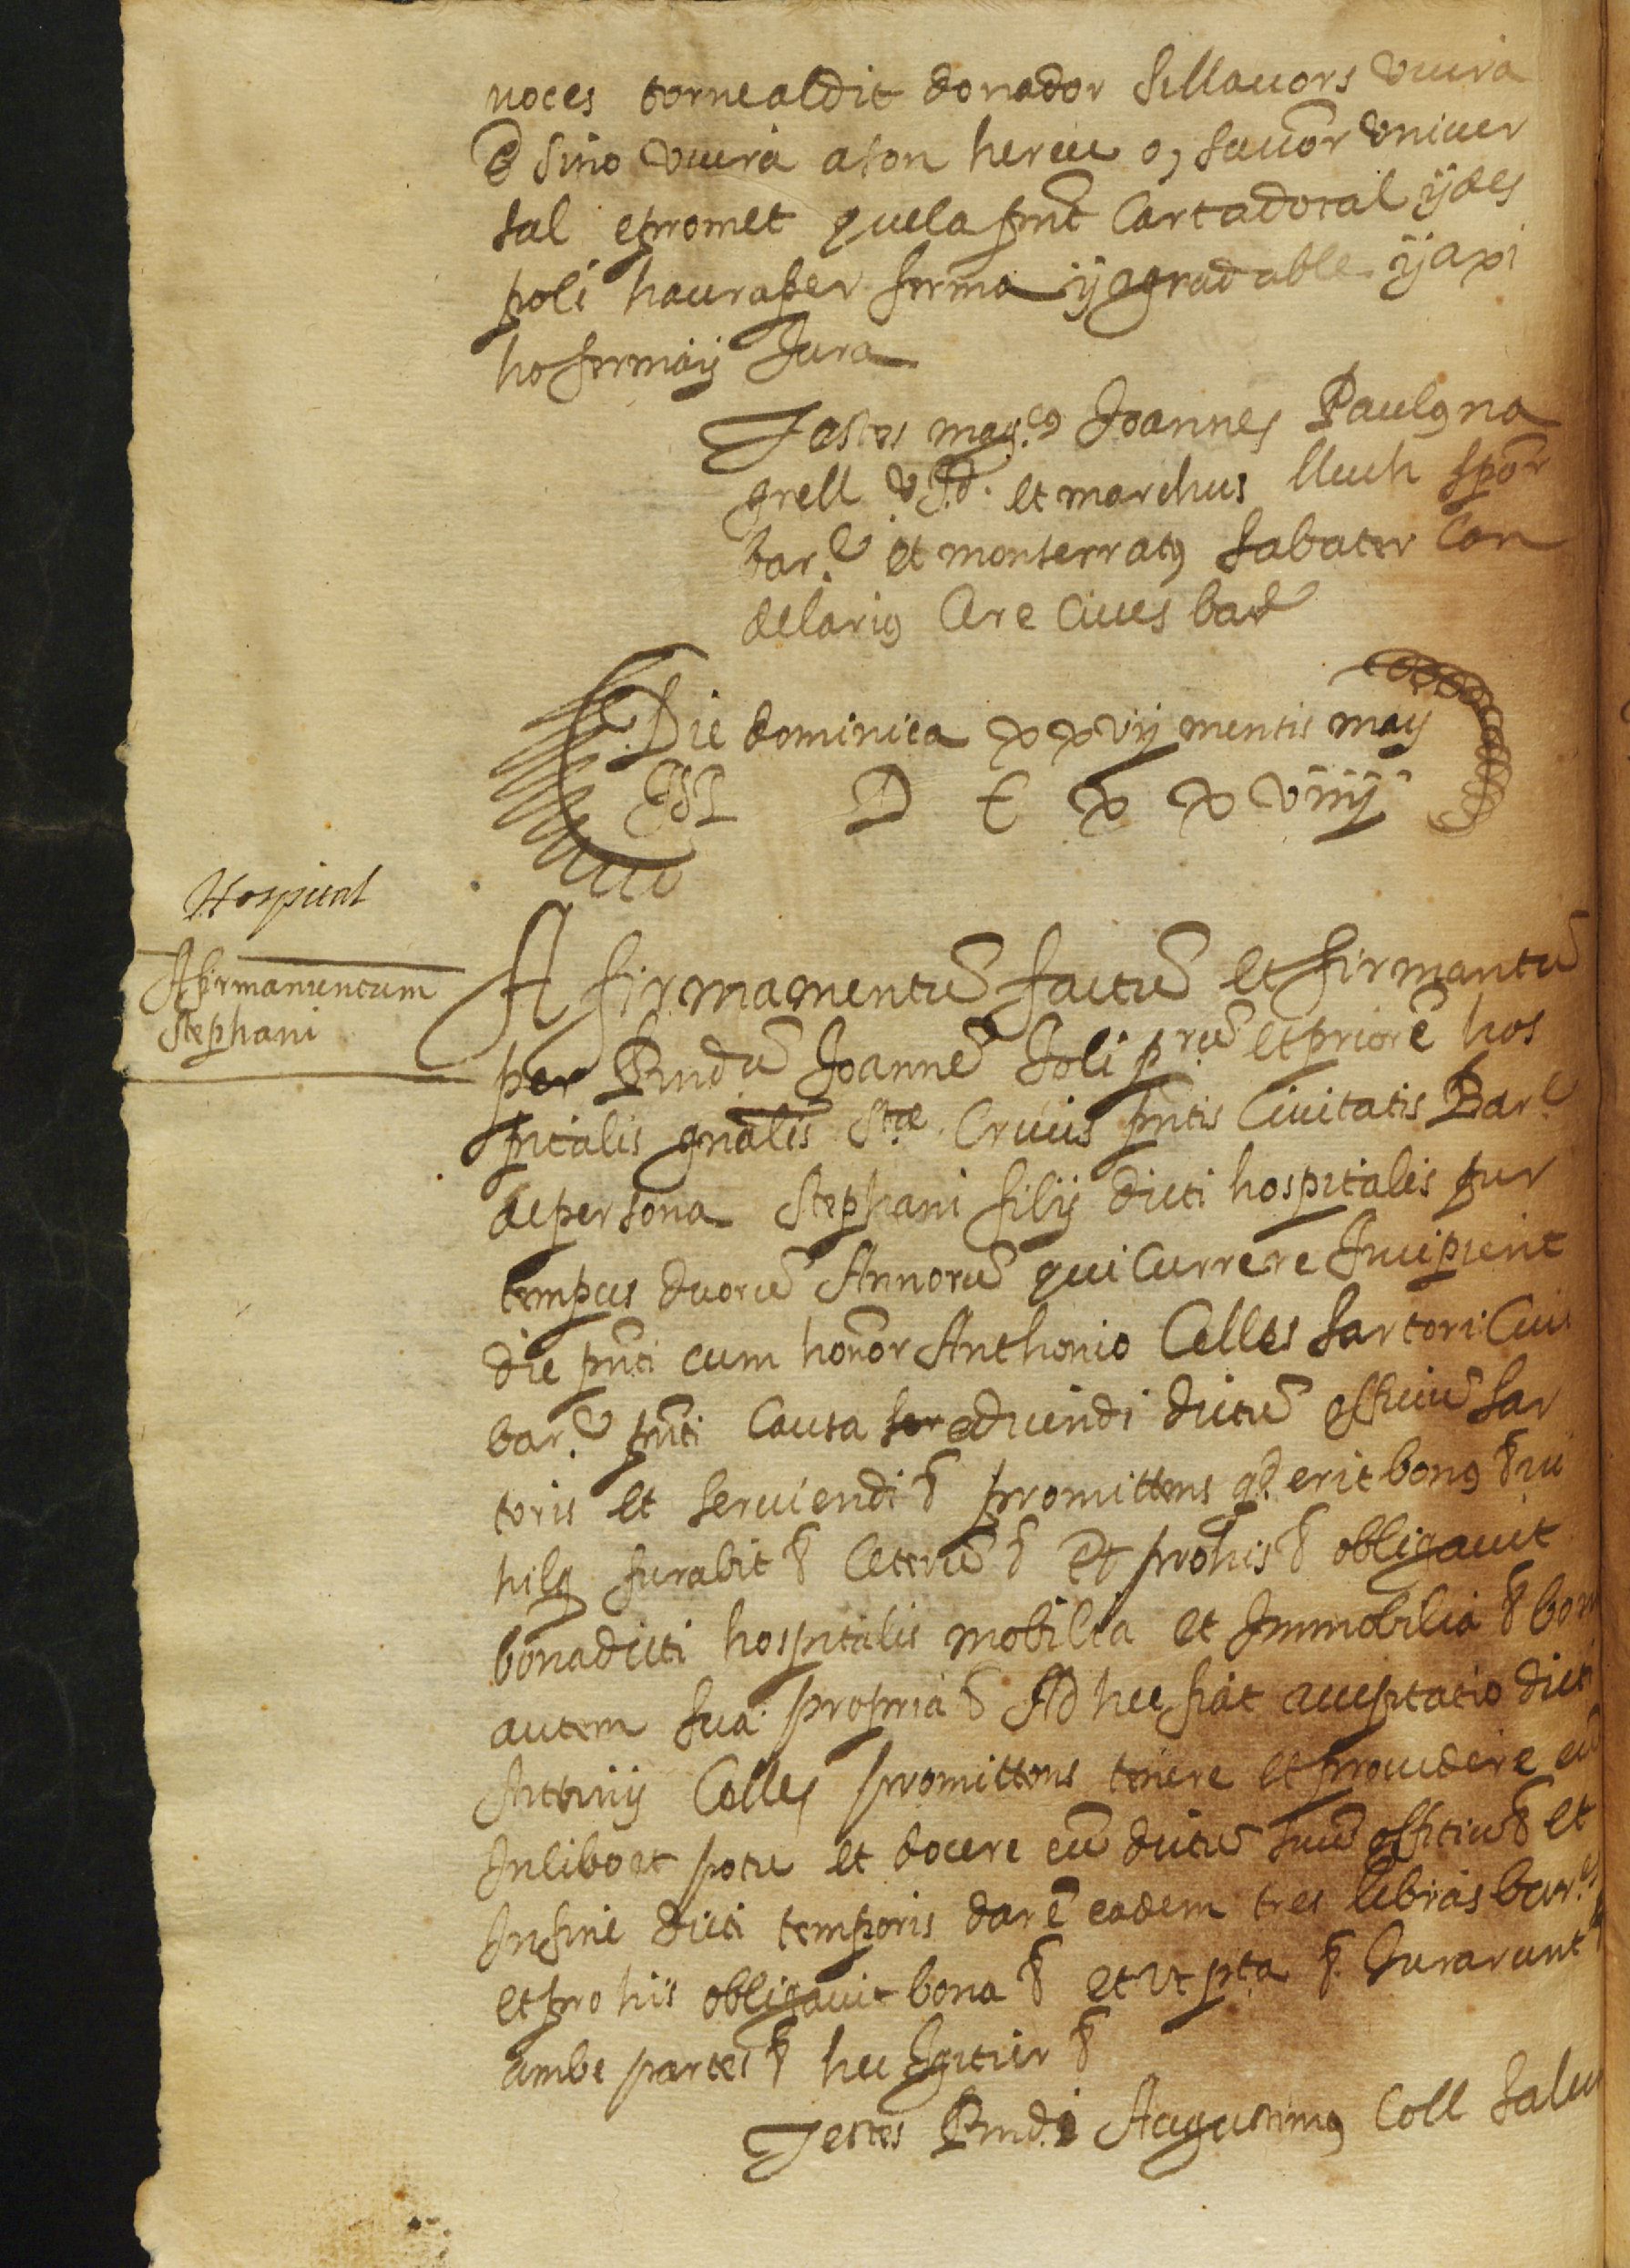 noces torne al dit donador sillavors viura
E sino viura a son hereu o, succ̄or univer
sal e promet que la pn̄t Carta dotal y des
poli haura per ferma y agradable y axi
ho ferma y Jura
Testes mag.cꝰ Joannes Paulꝰ na
grell V.J.d. et marchus lluch spōr
bar.e et monserratꝰ sabater Can
delariꝰ Cere Cives bar.e
Die dominica xxvij mensis maij
D C x x viiij
Hospital
Afirmamentum
Stephani
Afirmamentū factū et firmantū
per Rndū Joannē Soli p.rū et priorē hos
pitalis gn̄alis Stæ Crucis pn̄tis Civitatis Bar.e
de persona Stephani filij dicti hospitalis per
tempus duorū Annorū qui Currere Incipient
die pn̄ti cum honōr Anthonio Celles sartori Cive
bar.e pn̄ti Causa adicendi dictū officiū sar
toris et serviendi &c promittens qd. erit bonꝰ &c ni
hilq furabit &c Ceterū &c Et pro his &c obligavit
bona dicti hospitalis mobilia et Immobilia &c bona
autem sua propria &c Ad hec fiat acceptatio dicti
Antonij Celles promittens tenere et providere eū
In cibo et potu et docere eū dictū suū officiū &c et
In fine dicti temporis darē eadem tres libras bar.e
et pro hiis obligavit bona &c et ut pta &c Jurarunt
ambe partes &c hec Igitur &c
Testes Rnd.i Augustinꝰ Coll